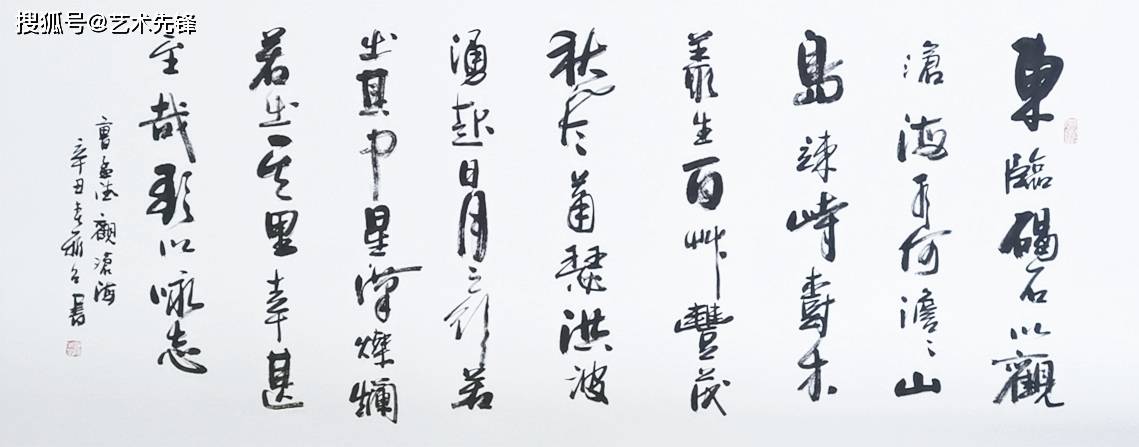 搜狐号@艺术先锋
東臨碣石以觀
滄海水何澹〻山
島竦峙樹木
叢生百艸豐茂
秋風蕭瑟洪波
湧起日月之行若
出其中星漢燦爛
若出其里幸甚
至哉歌以咏志
曹孟德觀滄海
辛丑春書